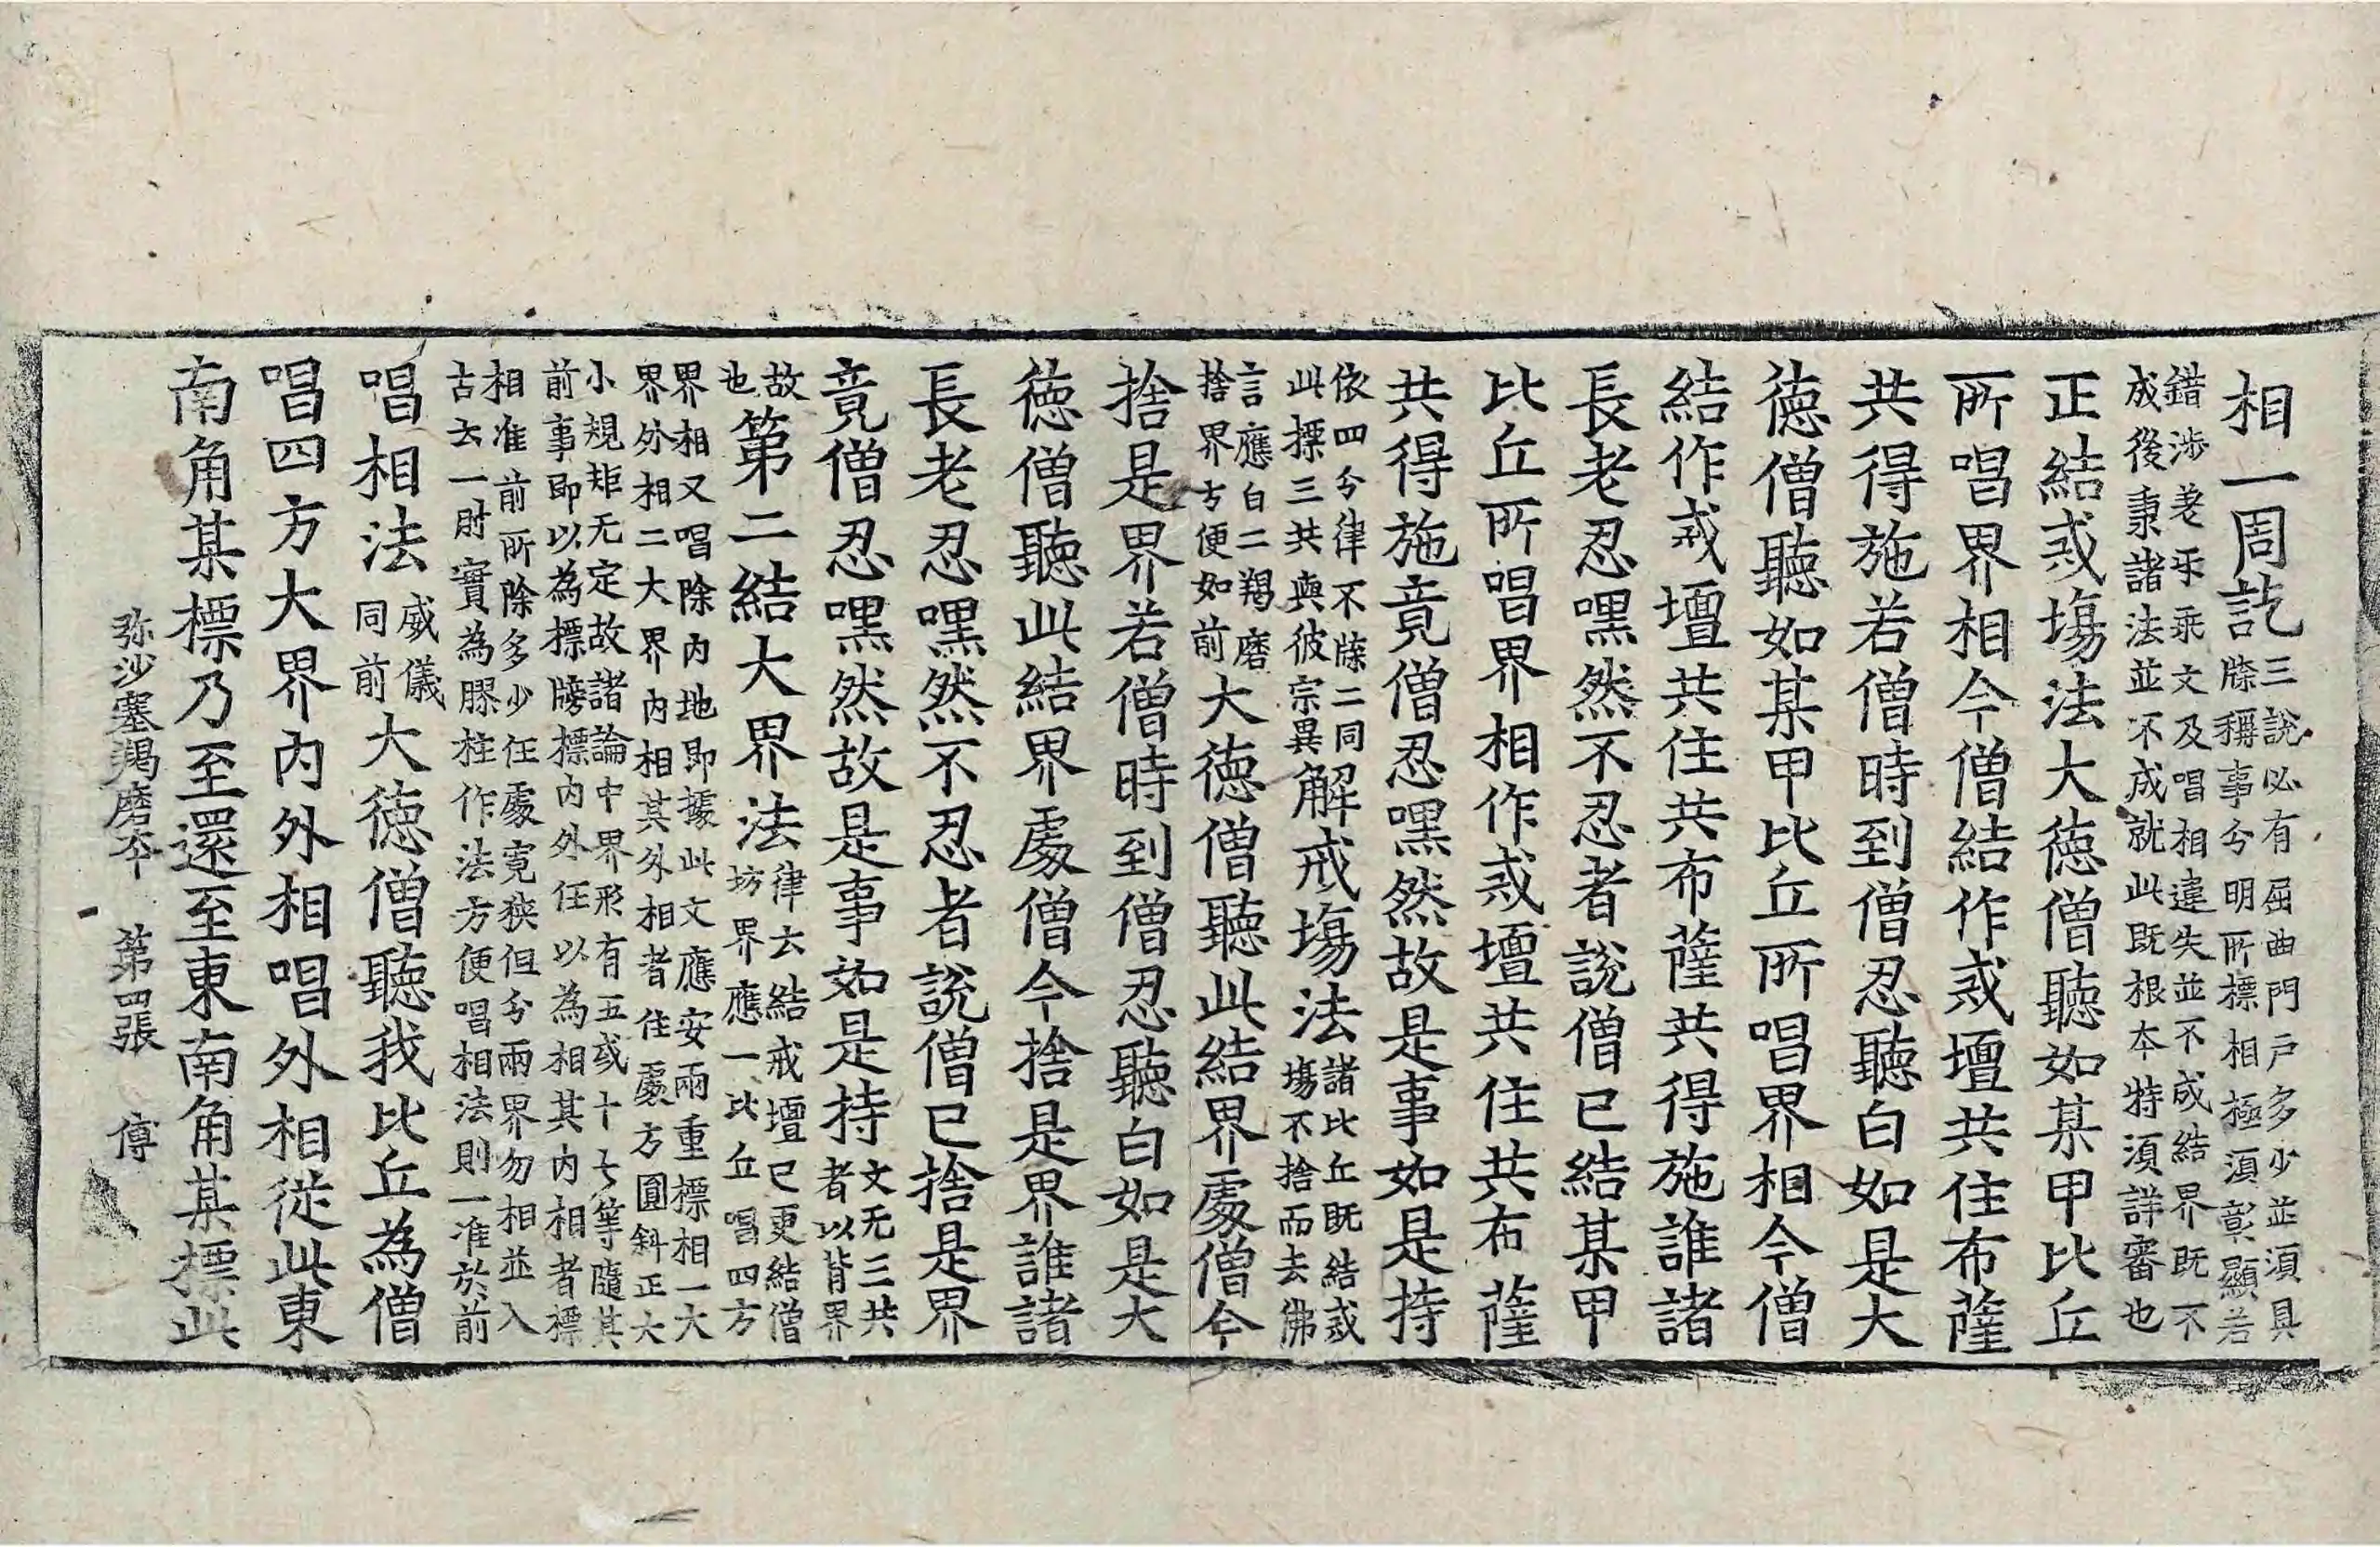 相一周訖三說必有屈曲門戶多少並須具牒稱事分明所標相極須彰顯若
錯涉差互乖文及唱相違失並不成結界既不成後秉諸法並不成就此既根本特須詳審也
正結戒場法大德僧聽如某甲比丘
所唱界相今僧結作戒壇共住布薩
共得施若僧時到僧忍聽白如是大
德僧聽如某甲比丘所唱界相今僧
結作戒壇共住共布薩共得施誰諸
長老忍嘿然不忍者說僧已結某甲
比丘所唱界相作戒壇共住共布薩
共得施竟僧忍嘿然故是事如是持
依四分律不牒二同此標三共與彼宗異解戒場法諸比丘既結戒場不捨而去佛
言應白二羯磨捨界方便如前大德僧聽此結界處僧今
捨是界若僧時到僧忍聽白如是大
德僧聽此結界處僧今捨是界誰諸
長老忍嘿然不忍者說僧已捨是界
竟僧忍嘿然故是事如是持文无三共者以背界
故也第二結大界法律云結戒壇已更結僧坊界應一比丘唱四方
界相又唱除內地即據此文應安兩重標相一大界外相二大界內相其外相者住處方圓斜正大
小規矩无定故諸論中界形有五或十七等隨其前事即以為標牓標內外任以為相其內相者標
相准前所除多少任處寬狹但分兩界勿相並入古云一肘實為膠柱作法方便唱相法則一准於前
唱相法威儀同前大德僧聽我比丘為僧
唱四方大界內外相唱外相從此東
南角某標乃至還至東南角某標此
弥沙塞羯磨本　第四張　傅